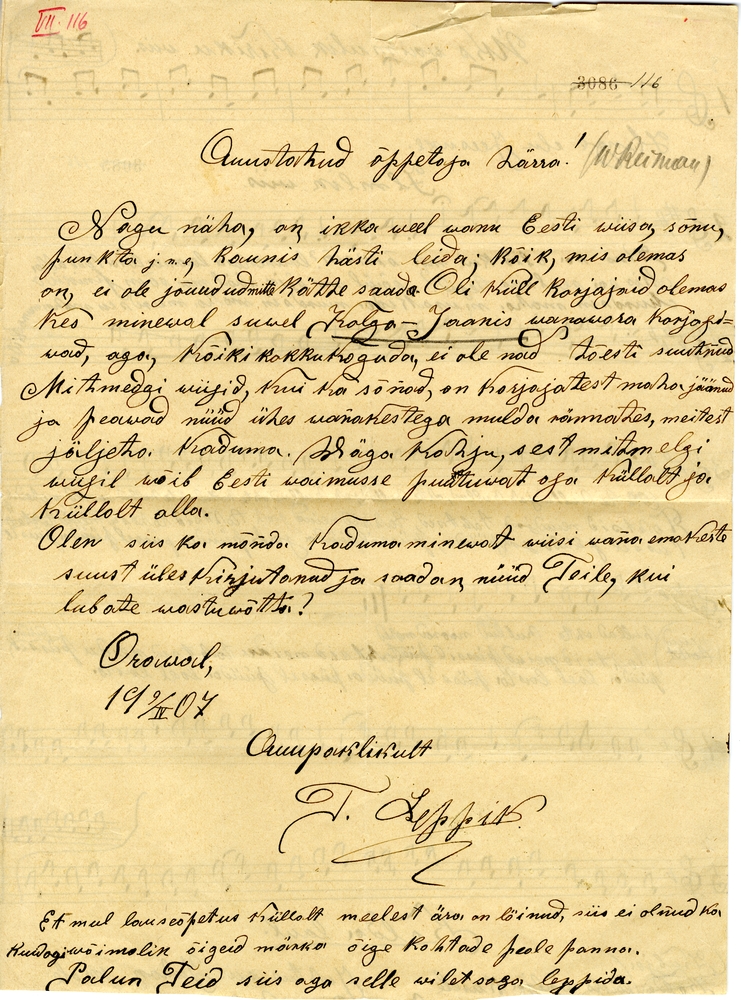 VII. 116
3086 116
Auustatud õppetaja härra! (W Reiman)
Nagu näha, on ikka weel wanu Eesti wiisa, sõnu,
punkta j.n.e, kaunis hästi leida; kõik, mis olemas
on, ei ole jõuudud mitte kätte saada. Oli küll korjajaid olemas
kes minewal suwel Kolga-Jaanis wanawara korjasi=
wad, aga, kõiki kokku koguda, ei ole nad tõesti suutnud
Mitmedgi wiisid, kui ka sõnad, on korjajatest maha jäänud
ja peawad nüüd ühes wanakestega mulda rännates, meitest
jäljeta kaduma. Wäga kahju, sest mitmelgi
wiisil wõib Eesti waimusse puutuwat aga küllalt ja
küllalt olla.
Olen siis ka mõnda kaduma minewat wiisi wana emakeste
suust üles kirjutanud ja saadan, nüüd Teile, kui
lubate wastuwõtta?
Orawal,
19 9/IV 07
Auupaklikult
T. Leppik.
Et mul lauseõpetus küllalt meelest ära on läinud, siis ei olnud ka
kuidagi wõimalik õigeid märka õige kohtade peale panna.
Palun Teid siis aga selle wiletsaga leppida.